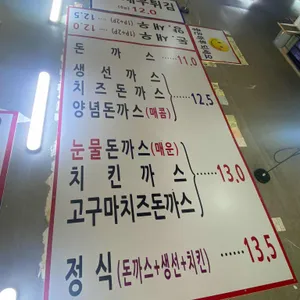 12.0
돈까스 11.0
생선까스
치즈돈까스 12.5
양념돈까스(매콤)
눈물돈까스(매운)
치킨까스 13.0
고구마치즈돈까스
정식(돈까스+생선+치킨) 13.5